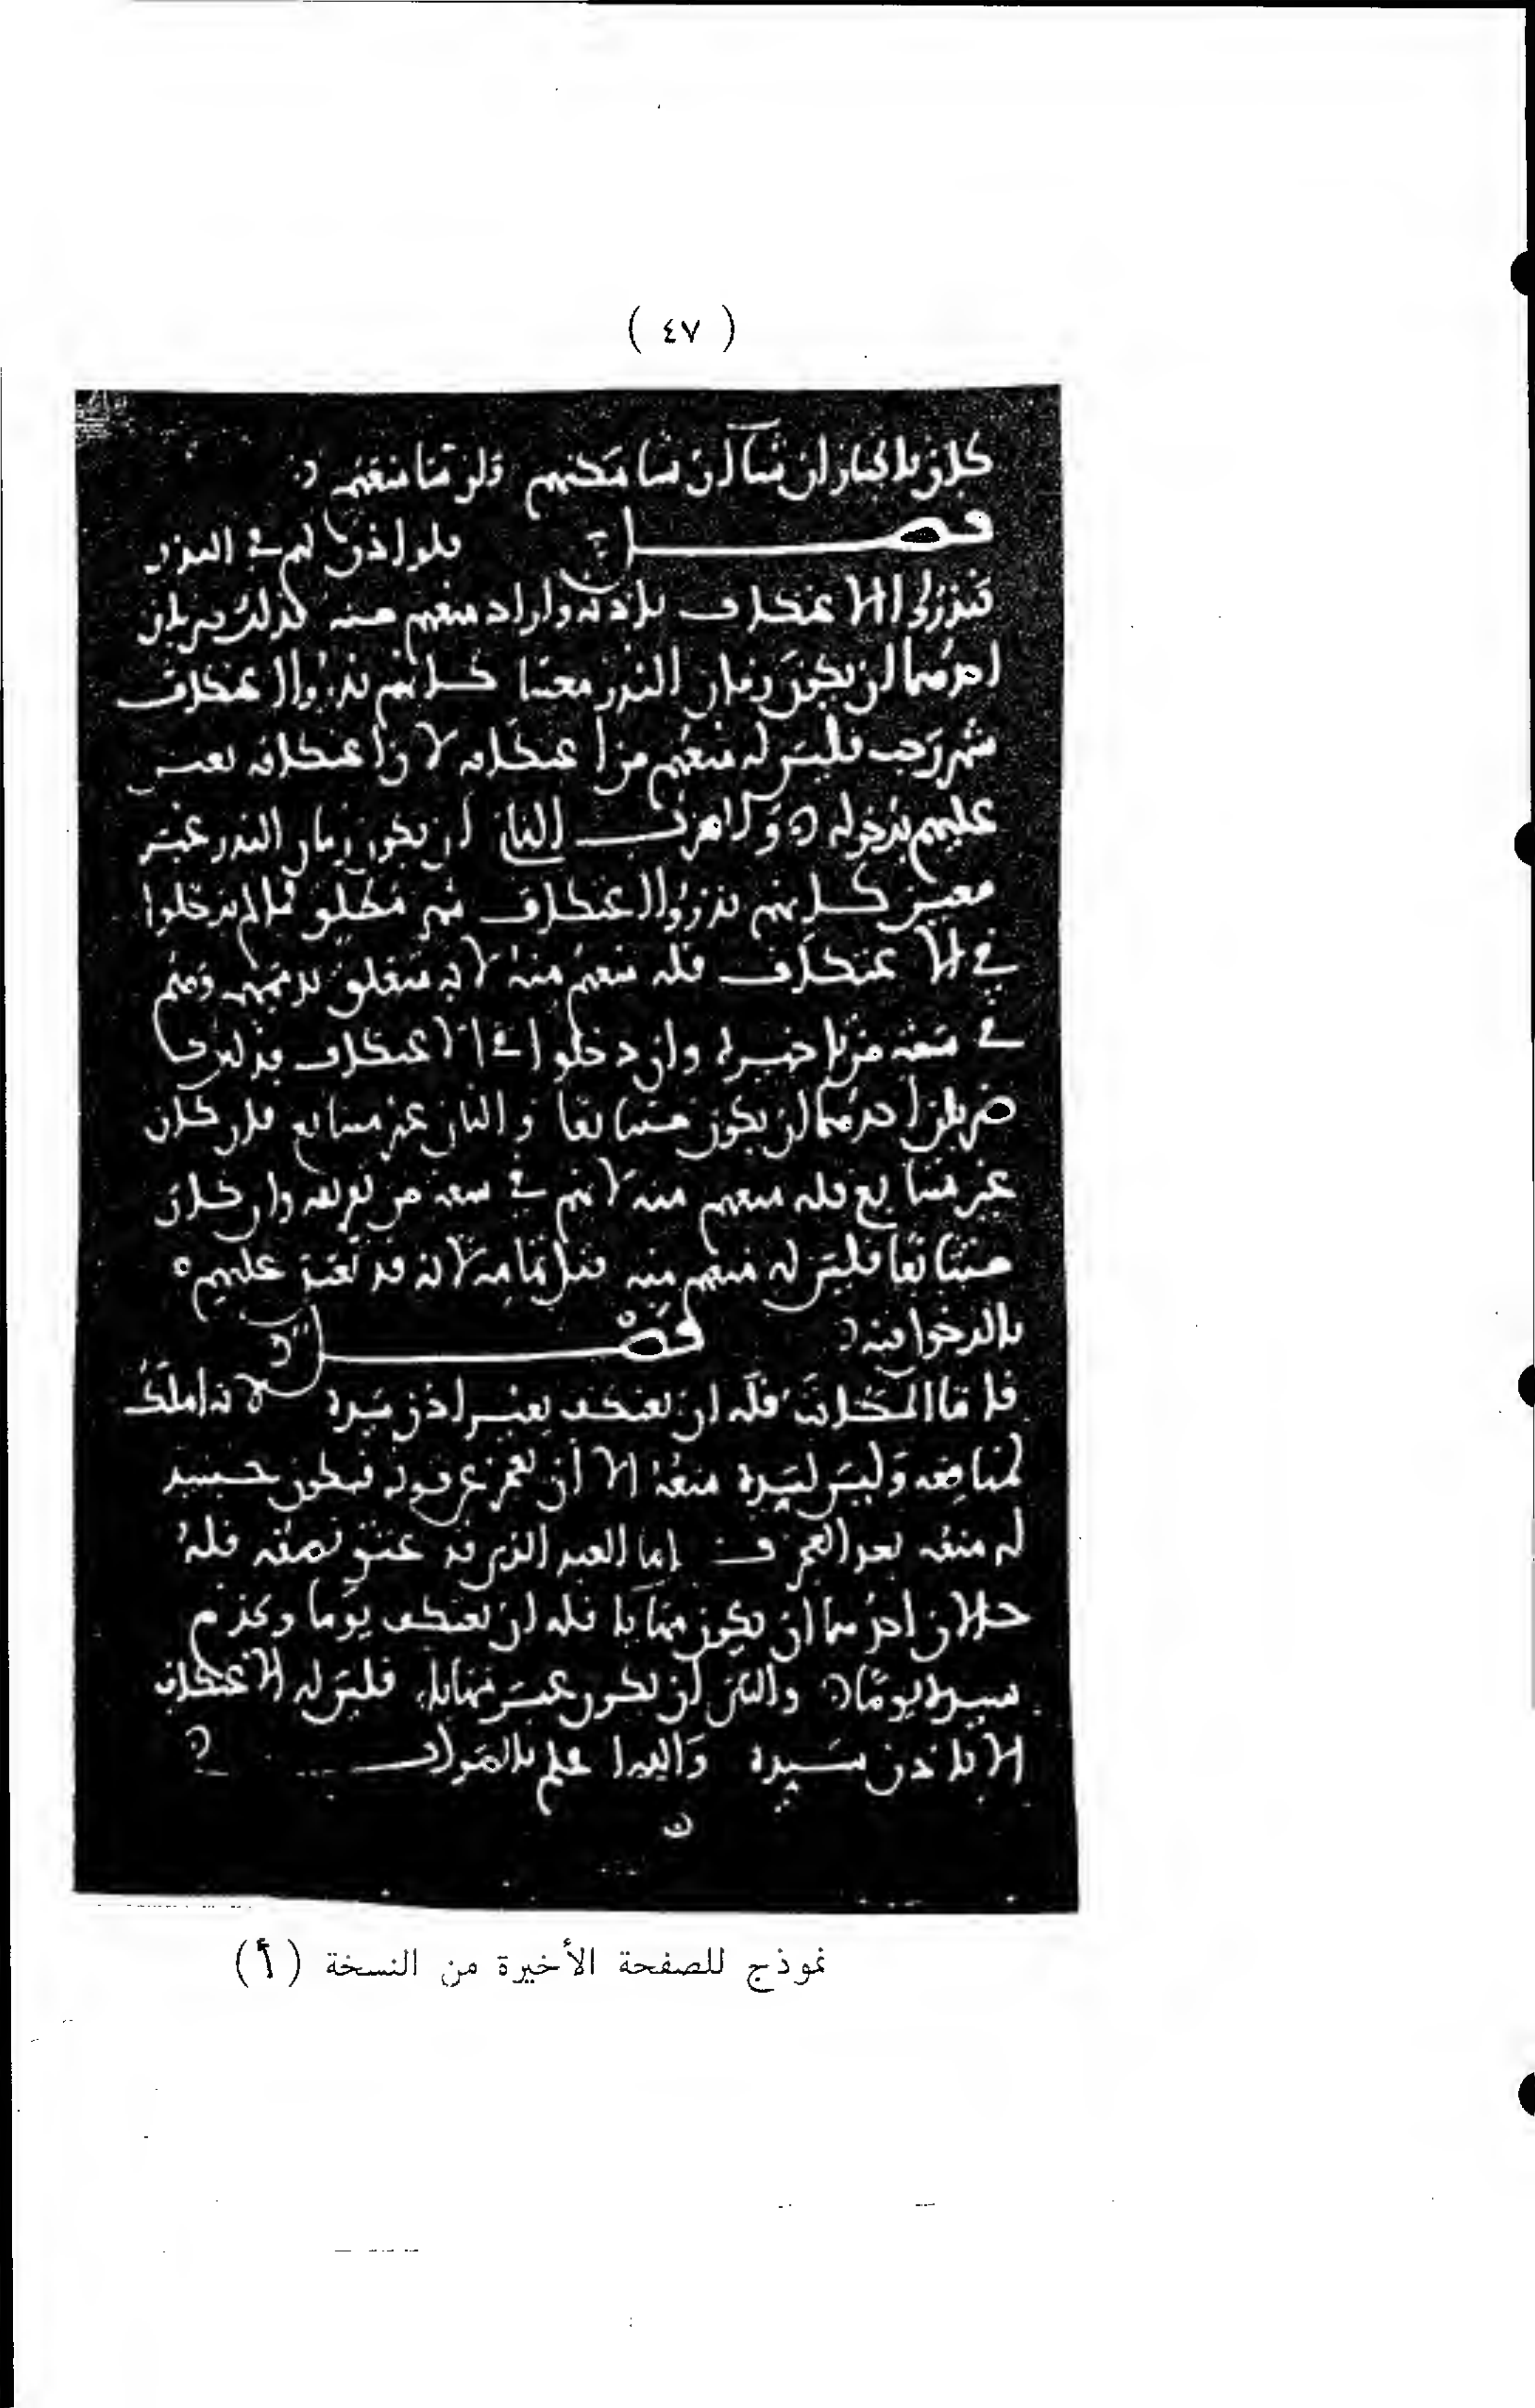 ( ٤٧ )
كان بالخيار ان شا أن شا مكنهم وان شا منعهم
فصل فلو اذن لهم في النذر
فنذروا الاعتكاف باذنه واراد منعهم منه فذلك ضربان
احدهما ان يكون زمان النذر معينا كانهم نذروا اعتكاف
شهر رجب فليس له منعهم من اعتكافه لان اعتكافه تعين
عليهم بدخوله والضرب الثاني ان يكون زمان النذر غير
معين كانهم نذروا اعتكاف شهر مطلق فان لم يدخلوا
في الاعتكاف فله منعهم منه لانه متعلق بذممهم وهم
في سعة من تاخيره وان دخلوا في الاعتكاف فذلك
ضربان احدهما ان يكون متتابعا والثاني غير متتابع فان كان
غير متتابع فله منعهم منه لانهم في سعة من تفريقه وان كان
متتابعا فليس له منعهم منه قبل تمامه لانه قد تعين عليهم
بالدخول فيه فصل
فاما المكاتب فله ان يعتكف بغير اذن سيده لانه املك
لمنافعه وليس لسيده منعه الا أن يعجز عن قوته فيكون حينئذ
له منعه بعد العجز اما العبد الذي قد عتق نصفه فله
حالان احدهما ان يكون مهاياا فله ان يعتكف يوما ويخدم
سيده يوما والثاني ان يكون غير مهايا، فليس له الاعتكاف
الا باذن سيده والله اعلم بالصواب
ن
نموذج للصفحة الأخيرة من النسخة (أ)